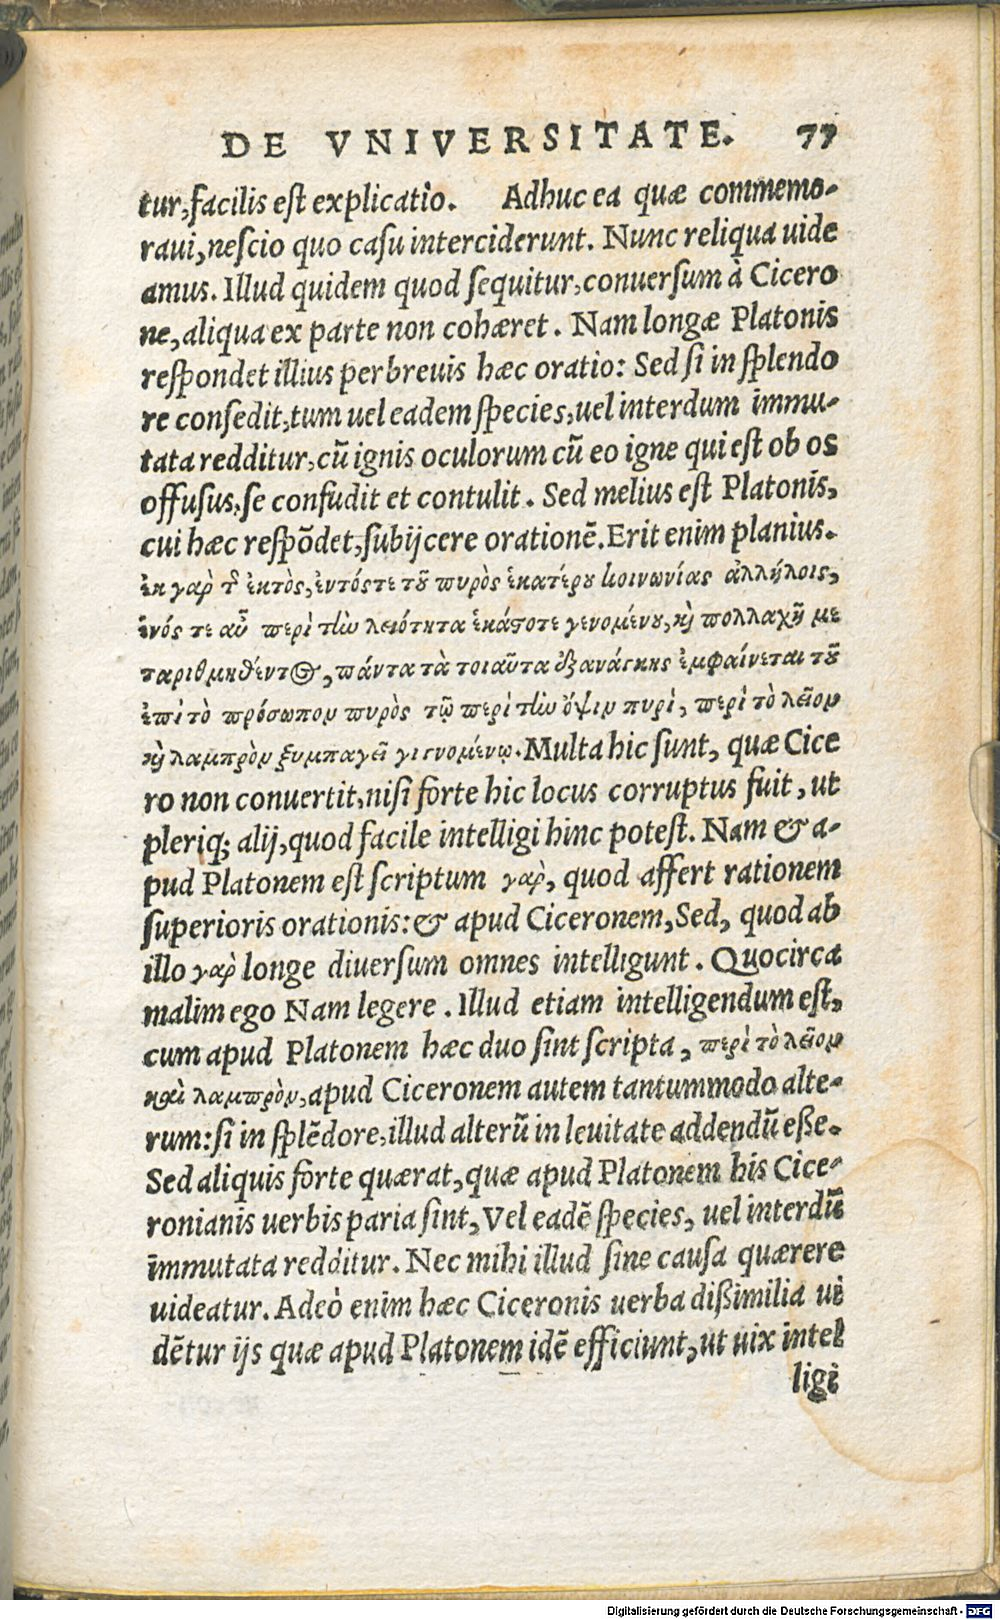 DE VNIVERSITATE. 77
tur, facilis est explicatio. Adhuc ea quæ commemo-
raui, nescio quo casu interciderunt. Nunc reliqua uide
amus. Illud quidem quod sequitur, conuersum à Cicero
ne, aliqua ex parte non cohæret. Nam longæ Platonis
respondet illius perbreuis hæc oratio: Sed si in splendo
re consedit, tum uel eadem species, uel interdum immu-
tata redditur, cũ ignis oculorum cũ eo igne qui est ob os
offusus, se confudit et contulit. Sed melius est Platonis,
cui hæc respõdet, subijcere orationẽ. Erit enim planius.
ἐκ γαρ τῆς ἐκτὸς, ἐντόστε τοῦ πυρὸς ἑκατέρου κοινωνίας ἀλλήλοις,
ἑνός τε αὖ περὶ τὴν λειότητα ἑκάστοτε γενομένου, καὶ πολλαχῆ με
ταριθμηθέντος, πάντα τὰ τοιαῦτα ἐξανάγκης ἐμφαίνεται τοῦ
ἐπὶ τὸ πρόσωπον πυρὸς τῷ περὶ τὴν ὄψιν πυρὶ, περὶ τὸ λεῖον
καὶ λαμπρὸν ξυμπαγεῖ γιγνομένῳ. Multa hic sunt, quæ Cice
ro non conuertit, nisi forte hic locus corruptus fuit, ut
pleriq; alij, quod facile intelligi hinc potest. Nam & a-
pud Platonem est scriptum γαρ, quod affert rationem
superioris orationis: & apud Ciceronem, Sed, quod ab
illo γαρ longe diuersum omnes intelligunt. Quocirca
malim ego Nam legere. Illud etiam intelligendum est,
cum apud Platonem hæc duo sint scripta, περὶ τὸ λεῖον
καὶ λαμπρὸν, apud Ciceronem autem tantummodo alte-
rum: si in splẽdore, illud alterũ in leuitate addendũ eße.
Sed aliquis forte quærat, quæ apud Platonem his Cice-
ronianis uerbis paria sint, Vel eadẽ species, uel interdũ
immutata redditur. Nec mihi illud sine causa quærere
uideatur. Adeò enim hæc Ciceronis uerba dißimilia ui
dẽtur ijs quæ apud Platonem idẽ efficiunt, ut uix intel
ligi
Digitalisierung gefördert durch die Deutsche Forschungsgemeinschaft - DFG